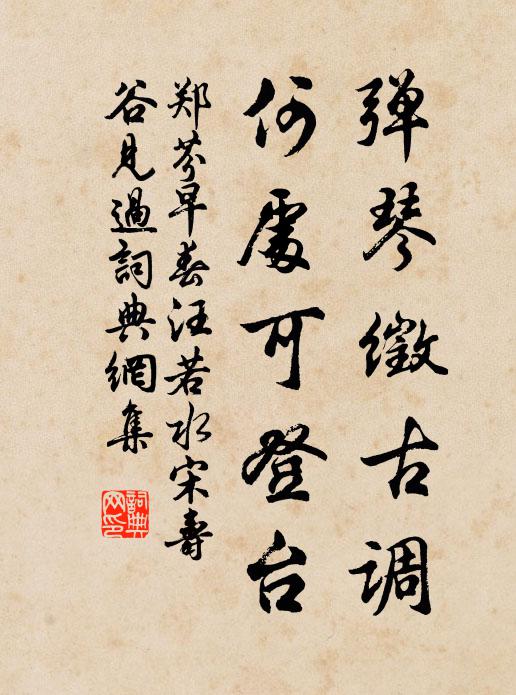 弹琴徵古调
何處可登台
郑芬早春汪若水宋壽
谷見過詞典網集
詞典网印